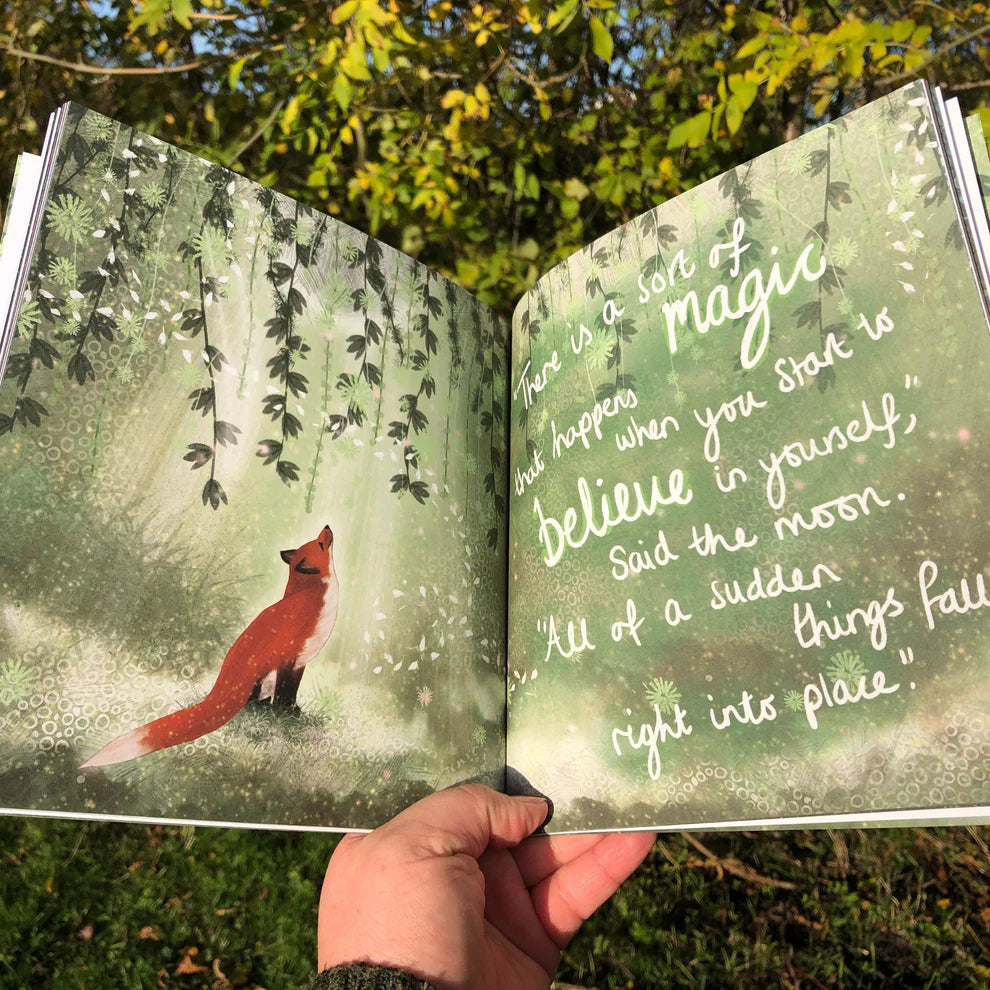 "There is a sort of
magic
that happens
when you start to
believe in yourself,"
Said the moon.
"All of a sudden
things fall
right into place".